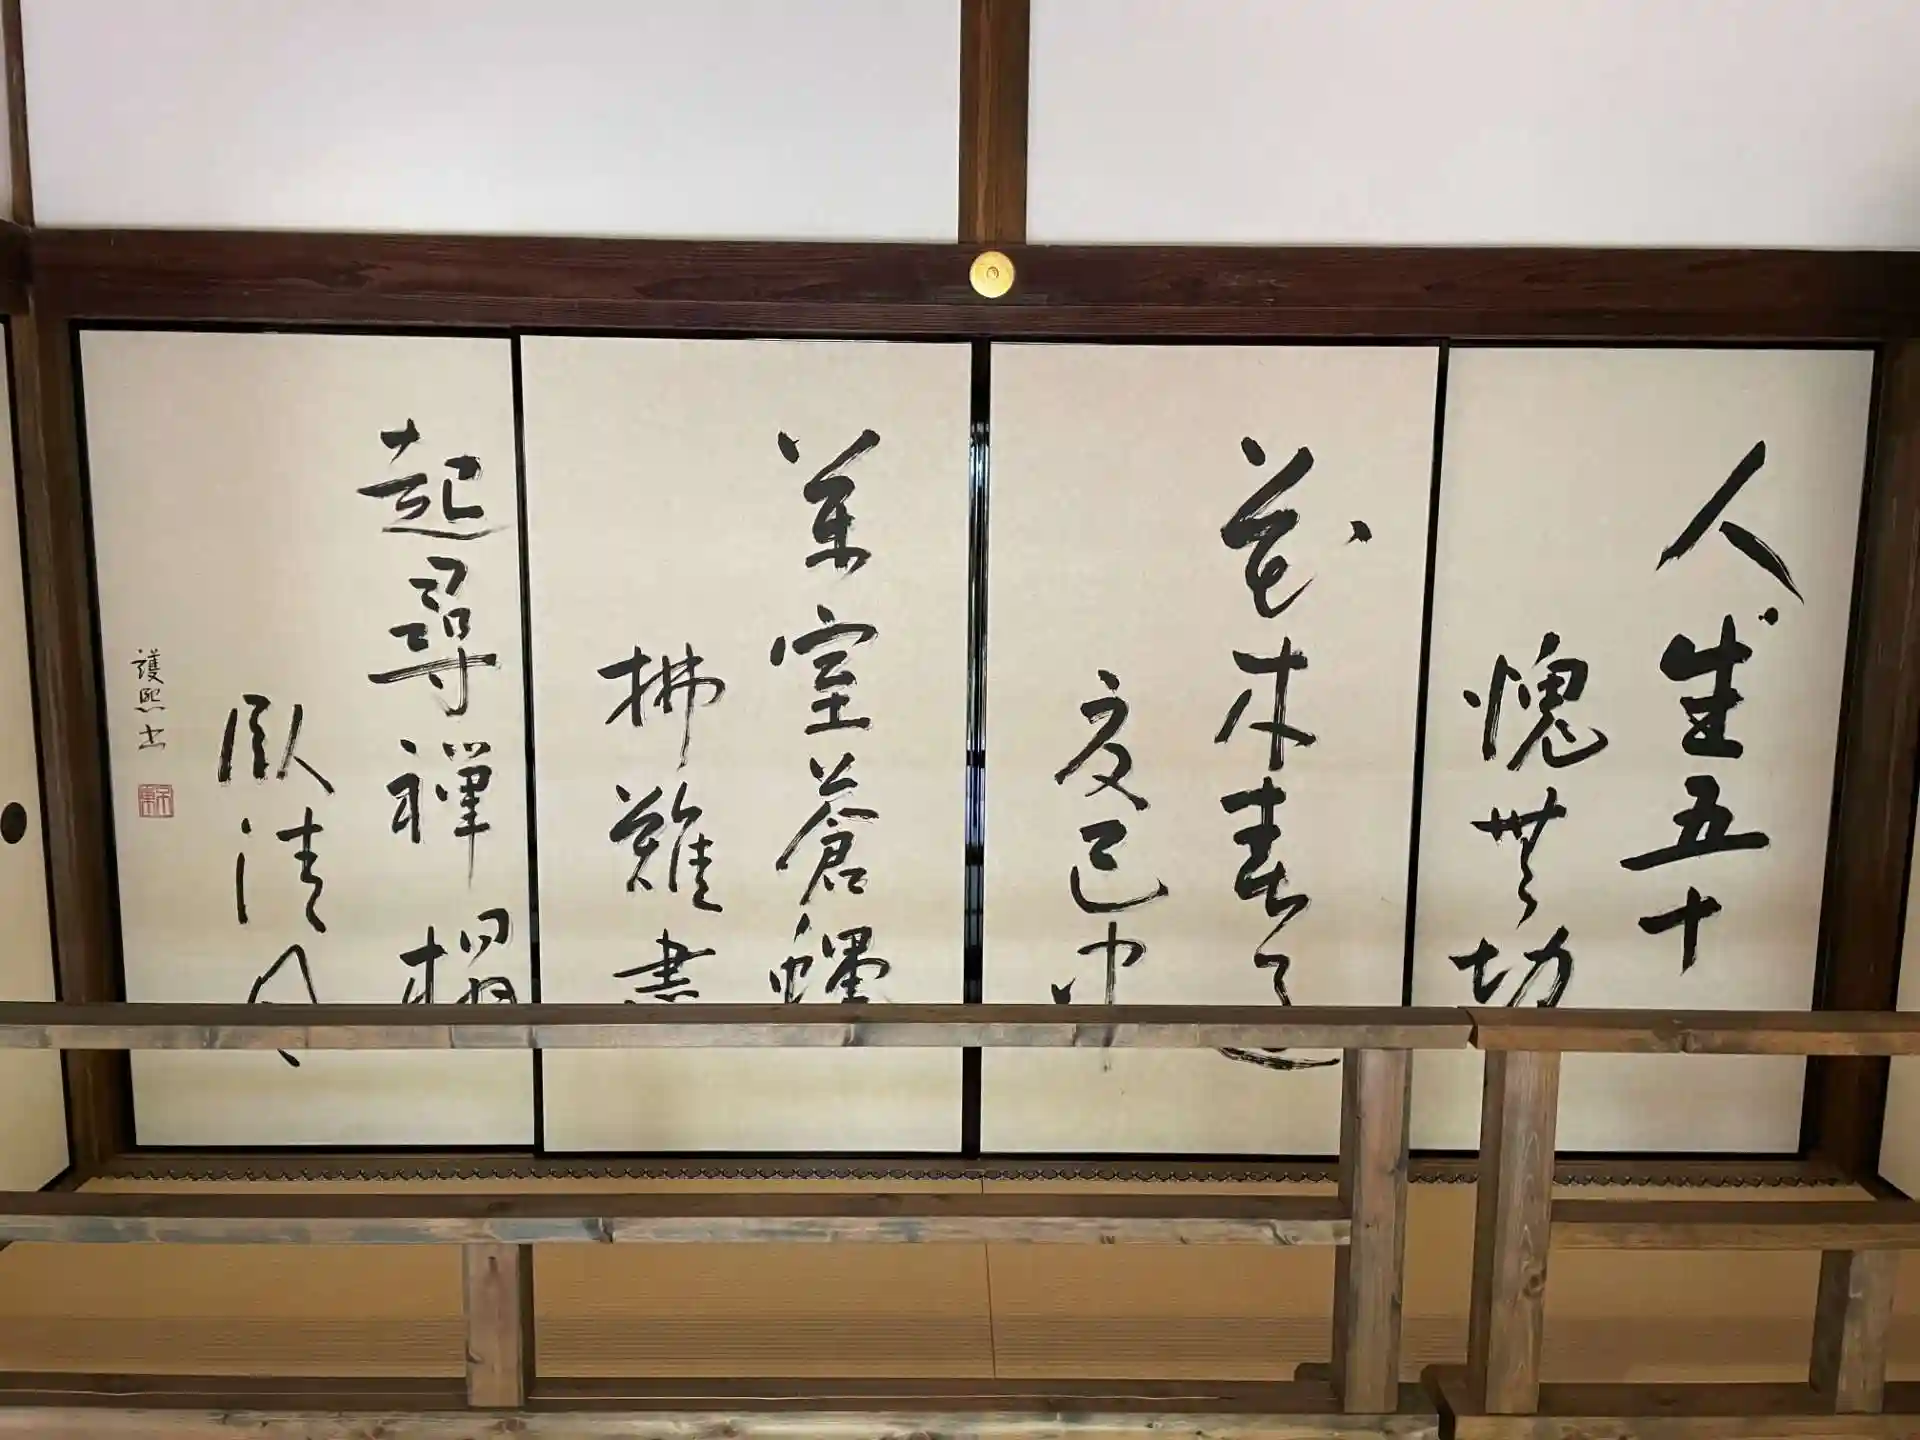 人生五十
愧無功
花木春過
夏已中
滿室蒼蠅
拂難盡
起尋禪榻
臥清風
護熙書